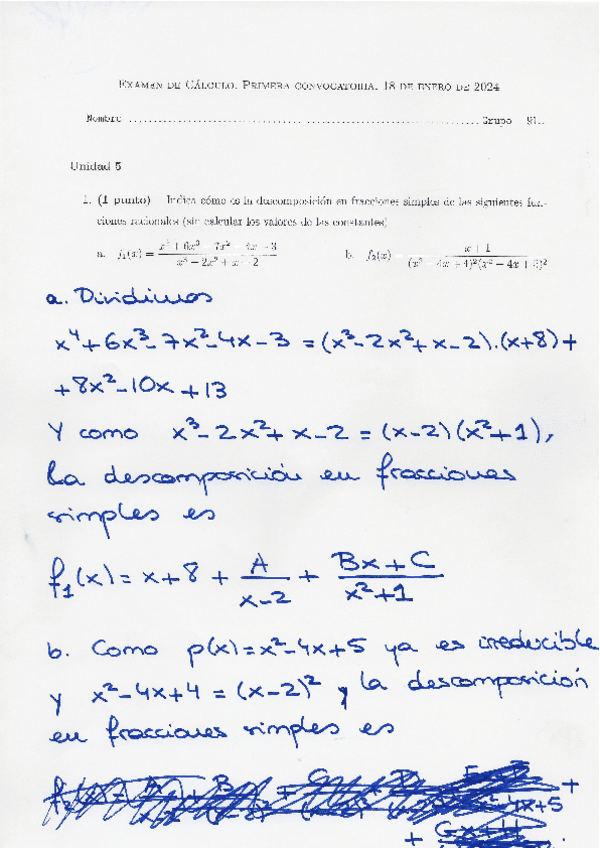 EXAMEN DE CÁLCULO. PRIMERA CONVOCATORIA. 18 DE ENERO DE 2024
Nombre ........................................................................ Grupo 91..
Unidad 5
1. (1 punto) Indica cómo es la descomposición en fracciones simples de las siguientes fun-
ciones racionales (sin calcular los valores de las constantes)
a. f₁(x) = (x⁴ + 6x³ − 7x² − 4x − 3)/(x³ − 2x² + x − 2) b. f₂(x) (x + 1)/((x² − 4x + 4)²(x² − 4x + 5)²
a. Dividimos
x⁴+6x³-7x²-4x-3 = (x³-2x²+x-2).(x+8)+
+8x²-10x+13
Y como x³-2x²+x-2 = (x-2)(x²+1),
la descomposición en fracciones
simples es
f₁(x) = x+8 + A/(x-2) + (Bx+C)/(x²+1)
b. Como p(x)=x²-4x+5 ya es irreducible
y x²-4x+4 = (x-2)², la descomposición
en fracciones simples es